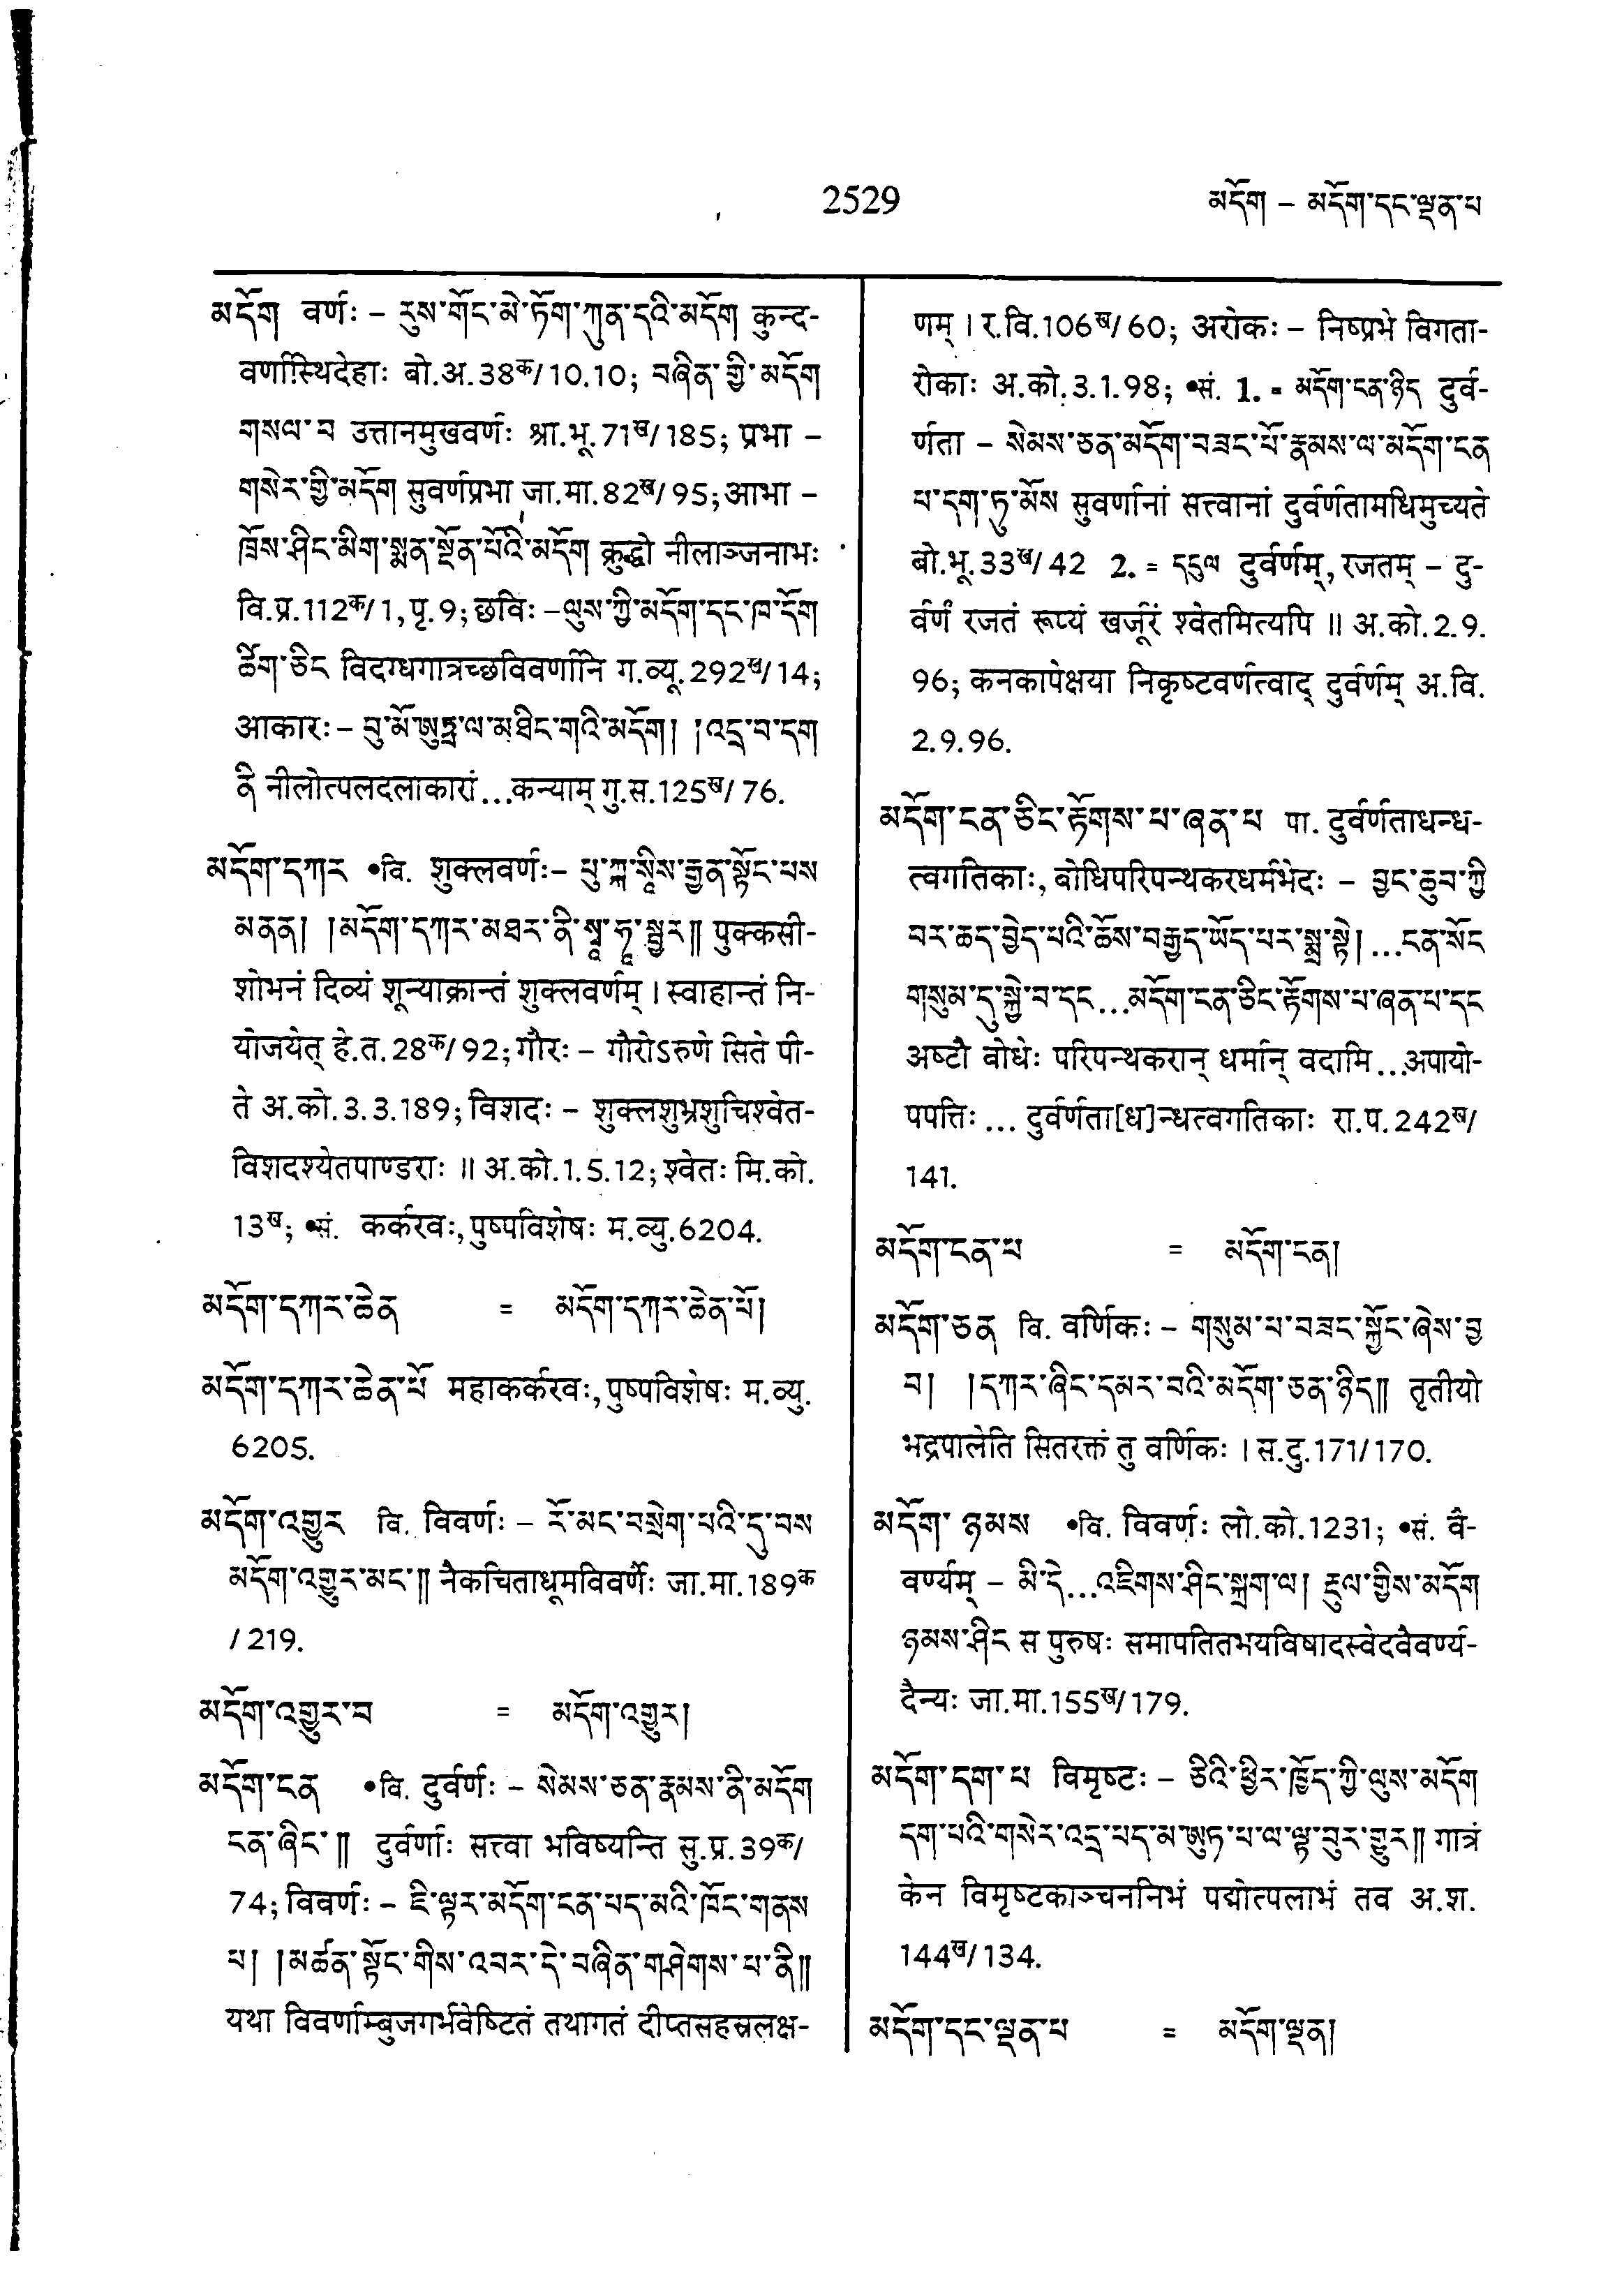 2529
མདོག – མདོག་དང་ལྡན་པ
མདོག वर्णः – རུས་གོང་མེ་ཏོག་ཀུན་དའི་མདོག कुन्द-
वर्णास्थिदेहाः बो.अ.38क/10.10; བཞིན་གྱི་མདོག
གསལ་བ उत्तानमुखवर्णः श्रा.भू.71ख/185; प्रभा –
གསེར་གྱི་མདོག सुवर्णप्रभा जा.मा.82ख/95; आभा –
ཁྲོས་ཤིང་མིག་སྨན་སྔོན་པོའི་མདོག क्रुद्धो नीलाञ्जनाभः
वि.प्र.112क/1, पृ.9; छविः – ལུས་ཀྱི་མདོག་དང་ཁ་དོག
ཚིག་ཅིང विदग्धगात्रच्छविवर्णानि ग.व्यू.292ख/14;
आकारः – བུ་མོ་ཨུཏྤ་ལ་མཐིང་གའི་མདོག། །འདྲ་བ་དག
ནི नीलोत्पलदलाकारां...कन्याम् गु.स.125ख/76.
མདོག་དཀར •वि. शुक्लवर्णः – པུ་ཀྐ་སཱིས་རྒྱན་སྟོང་པས
མནན། །མདོག་དཀར་མཐར་ནི་སྭཱ་ཧཱ་སྦྱར༎ पुक्कसी-
शोभनं दिव्यं शून्याक्रान्तं शुक्लवर्णम् । स्वाहान्तं नि-
योजयेत् हे.त.28क/92; गौरः – गौरोऽरुणे सिते पी-
ते अ.को.3.3.189; विशदः – शुक्लशुभ्रशुचिश्वेत-
विशदश्येतपाण्डराः ॥ अ.को.1.5.12; श्वेतः मि.को.
13ख; •सं. कर्करवः, पुष्पविशेषः म.व्यु.6204.
མདོག་དཀར་ཆེན = མདོག་དཀར་ཆེན་པོ།
མདོག་དཀར་ཆེན་པོ महाकर्करवः, पुष्पविशेषः म.व्यु.
6205.
མདོག་འགྱུར वि. विवर्णः – རོ་མང་བསྲེག་པའི་དུ་བས
མདོག་འགྱུར་མང་༎ नैकचिताधूमविवर्णैः जा.मा.189क
/219.
མདོག་འགྱུར་བ = མདོག་འགྱུར།
མདོག་ངན •वि. दुर्वर्णः – སེམས་ཅན་རྣམས་ནི་མདོག
ངན་ཞིང་༎ दुर्वर्णाः सत्त्वा भविष्यन्ति सु.प्र.39क/
74; विवर्णः – ཇི་ལྟར་མདོག་ངན་པད་མའི་ཁོང་གནས
པ། །མཚན་སྟོང་གིས་འབར་དེ་བཞིན་གཤེགས་པ་ནི༎
यथा विवर्णाम्बुजगर्भवेष्टितं तथागतं दीप्तसहस्रलक्ष-
णम् । र.वि.106ख/60; अरोकः – निष्प्रभे विगता-
रोकाः अ.को.3.1.98; •सं. 1. = མདོག་ངན་ཉིད दुर्व-
र्णता – སེམས་ཅན་མདོག་བཟང་པོ་རྣམས་ལ་མདོག་ངན
པ་དག་ཏུ་མོས सुवर्णानां सत्त्वानां दुर्वर्णतामधिमुच्यते
बो.भू.33ख/42 2. = དངུལ दुर्वर्णम्, रजतम् – दु-
र्वर्णं रजतं रूप्यं खर्जूरं श्वेतमित्यपि ॥ अ.को.2.9.
96; कनकापेक्षया निकृष्टवर्णत्वाद् दुर्वर्णम् अ.वि.
2.9.96.
མདོག་ངན་ཅིང་རྟོགས་པ་ཞན་པ पा. दुर्वर्णताधन्ध-
त्वगतिकाः, बोधिपरिपन्थकरधर्मभेदः – བྱང་ཆུབ་ཀྱི
བར་ཆད་བྱེད་པའི་ཆོས་བརྒྱད་ཡོད་པར་སྨྲ་སྟེ།...ངན་སོང
གསུམ་དུ་སྐྱེ་བ་དང...མདོག་ངན་ཅིང་རྟོགས་པ་ཞན་པ་དང
अष्टौ बोधेः परिपन्थकरान् धर्मान् वदामि...अपायो-
पपत्तिः... दुर्वर्णता[ध]न्धत्वगतिकाः रा.प.242ख/
141.
མདོག་ངན་པ = མདོག་ངན།
མདོག་ཅན वि. वर्णिकः – གསུམ་པ་བཟང་སྐྱོང་ཞེས་བྱ
བ། །དཀར་ཞིང་དམར་བའི་མདོག་ཅན་ཉིད༎ तृतीयो
भद्रपालेति सितरक्तं तु वर्णिकः । स.दु.171/170.
མདོག་ཉམས •वि. विवर्णः लो.को.1231; •सं. वै-
वर्ण्यम् – མི་དེ...འཇིགས་ཤིང་སྐྲག་ལ། རྡུལ་གྱིས་མདོག
ཉམས་ཤིང स पुरुषः समापतितभयविषादस्वेदवैवर्ण्य-
दैन्यः जा.मा.155ख/179.
མདོག་དག་པ विमृष्टः – ཅིའི་ཕྱིར་ཁྱོད་ཀྱི་ལུས་མདོག
དག་པའི་གསེར་འདྲ་པད་མ་ཨུཏ་པ་ལ་ལྟ་བུར་གྱུར༎ गात्रं
केन विमृष्टकाञ्चननिभं पद्मोत्पलाभं तव अ.श.
144ख/134.
མདོག་དང་ལྡན་པ = མདོག་ལྡན།